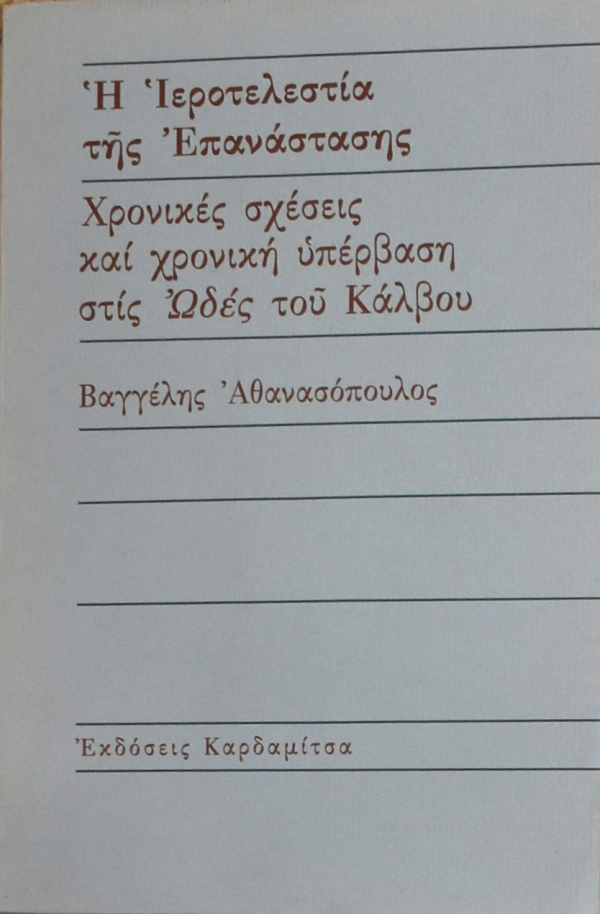 Ἡ Ἱεροτελεστία
τῆς Ἐπανάστασης
Χρονικές σχέσεις
καί χρονική ὑπέρβαση
στίς Ὠδές τοῦ Κάλβου
Βαγγέλης Ἀθανασόπουλος
Ἐκδόσεις Καρδαμίτσα